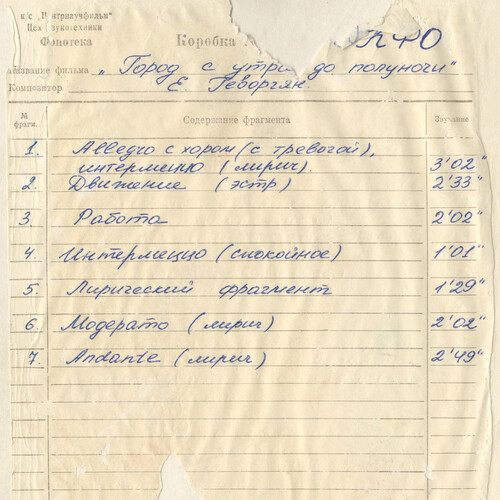 к/с „Центрнаучфильм"
Цех звукотехники
Фонотека
Коробка № УКФО
Название фильма „Город с утра до полуночи"
Композитор Е. Геворгян.
№ фрагм. Содержание фрагмента Звучание
1. Allegro с хором (с тревогой),
интермеццо (лирич). 3'02"
2. Движение (эстр) 2'33"
3. Работа 2'02"
4. Интермеццо (спокойное) 1'01"
5. Лирический фрагмент 1'29"
6. Модерато (лирич) 2'02"
7. Andante (лирич) 2'49"